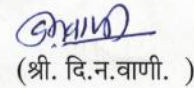 (श्री. दि.न.वाणी. )